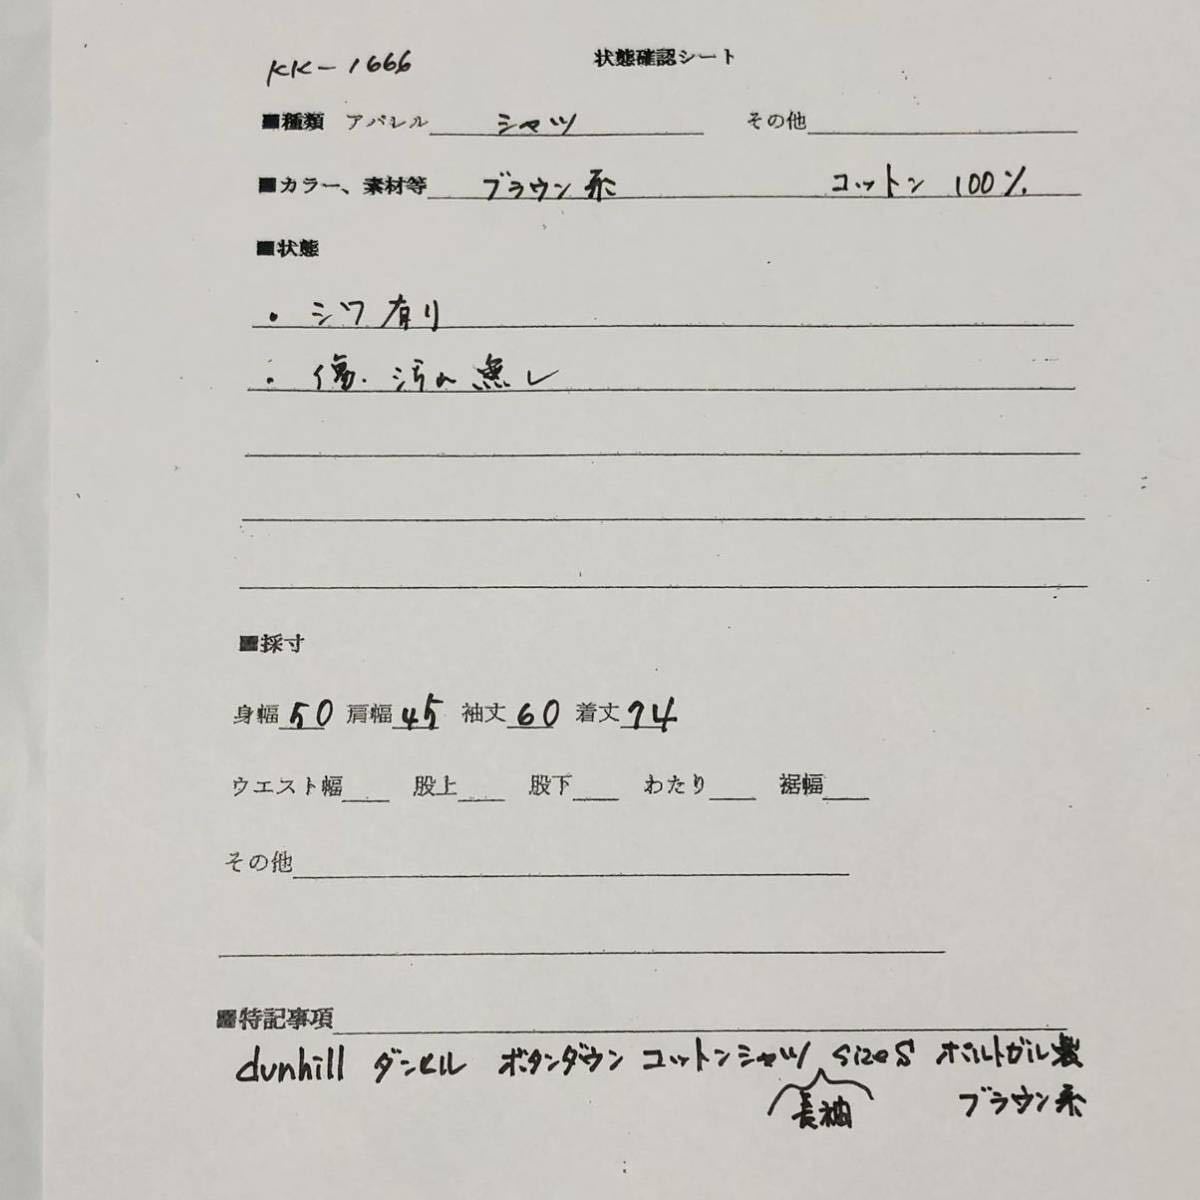 KK-1666 状態確認シート
■種類 アパレル シャツ その他
■カラー、素材等 ブラウン系 コットン 100%
■状態
・シワ有り
・傷・汚れ無し
■採寸
身幅 50 肩幅 45 袖丈 60 着丈 74
ウエスト幅 股上 股下 わたり 裾幅
その他
■特記事項
dunhill ダンヒル ボタンダウン コットンシャツ sizeS ポルトガル製
長袖 ブラウン系